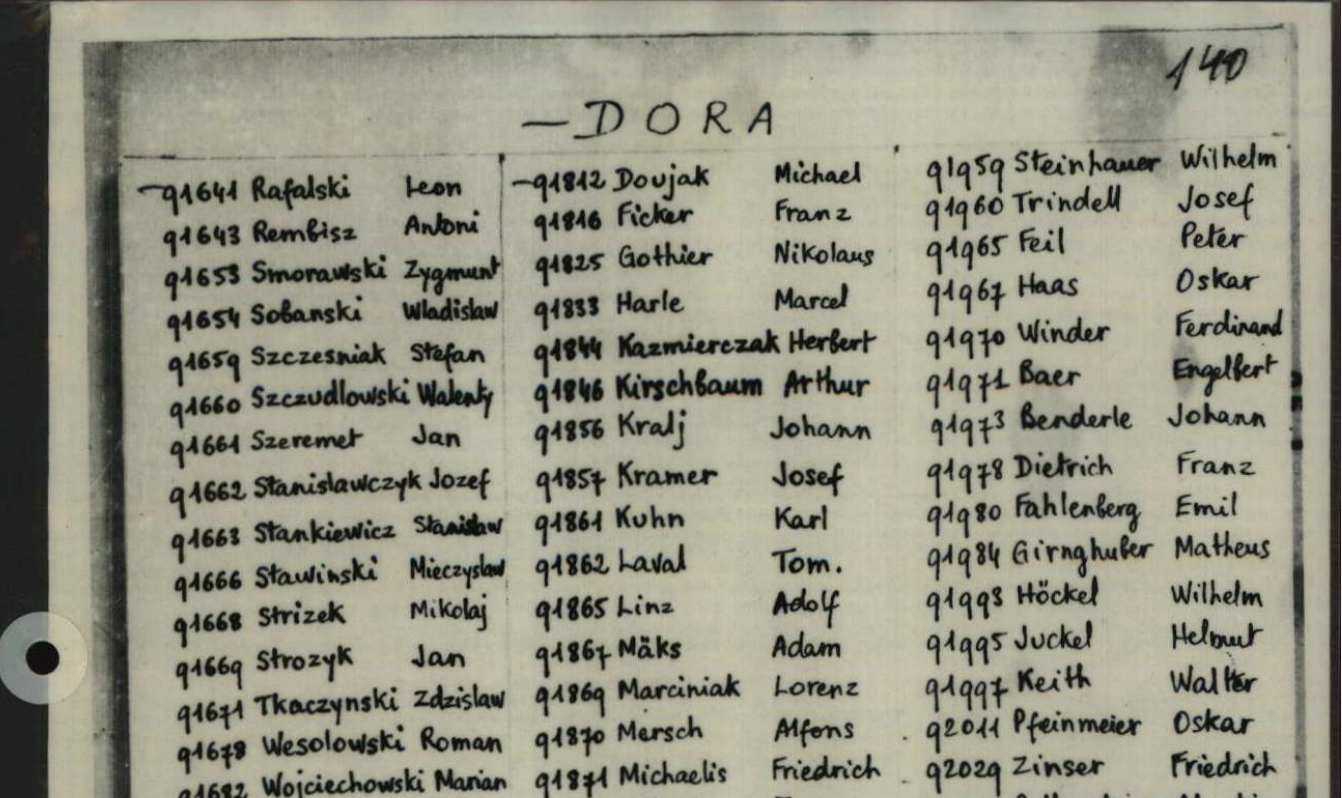 140
— DORA
91641 Rafalski Leon
91643 Rembisz Antoni
91653 Smorawski Zygmunt
91654 Sobanski Wladislaw
91659 Szczesniak Stefan
91660 Szczudlowski Walenty
91661 Szeremet Jan
91662 Stanislawczyk Jozef
91663 Stankiewicz Stanislaw
91666 Stawinski Mieczyslaw
91668 Strizek Mikolaj
91669 Strozyk Jan
91671 Tkaczynski Zdzislaw
91678 Wesolowski Roman
91682 Wojciechowski Marian
91812 Doujak Michael
91816 Ficker Franz
91825 Gothier Nikolaus
91833 Harle Marcel
91844 Kazmierczak Herbert
91846 Kirschbaum Arthur
91856 Kralj Johann
91857 Kramer Josef
91861 Kuhn Karl
91862 Laval Tom.
91865 Linz Adolf
91867 Mäks Adam
91869 Marciniak Lorenz
91870 Mersch Alfons
91871 Michaelis Friedrich
91959 Steinhauer Wilhelm
91960 Trindell Josef
91965 Feil Peter
91967 Haas Oskar
91970 Winder Ferdinand
91971 Baer Engelbert
91973 Benderle Johann
91978 Dietrich Franz
91980 Fahlenberg Emil
91984 Girnghuber Matheus
91993 Höckel Wilhelm
91995 Juckel Helmut
91997 Keith Walter
92011 Pfeinmeier Oskar
92029 Zinser Friedrich